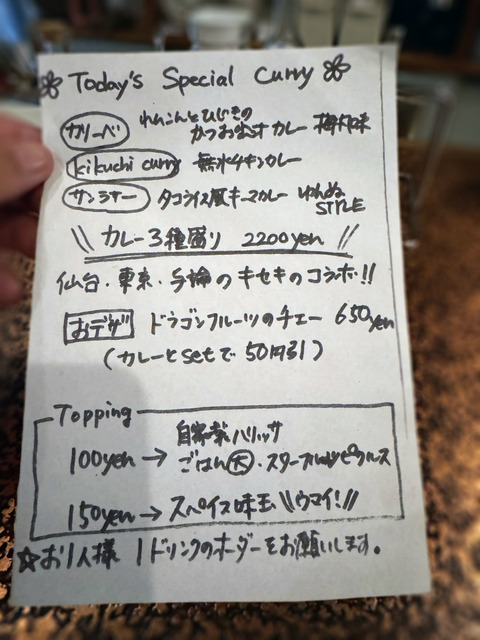 Today's Special Curry
カリーベ れんこんとひじきの
かつお出汁カレー 梅風味
kikuchi curry 無水チキンカレー
サンラサー タコライス風キーマカレー
STYLE
\\ カレー3種盛り 2200yen //
仙台・東京・与論のキセキのコラボ!!
おデザ ドラゴンフルーツのチェー 650yen
(カレーとsetで 50円引)
Topping
自家製ハリッサ
100yen → ごはん大・スターフルーツピクルス
150yen → スパイス味玉 \\ウマイ!//
☆お1人様 1ドリンクのオーダーをお願いします。